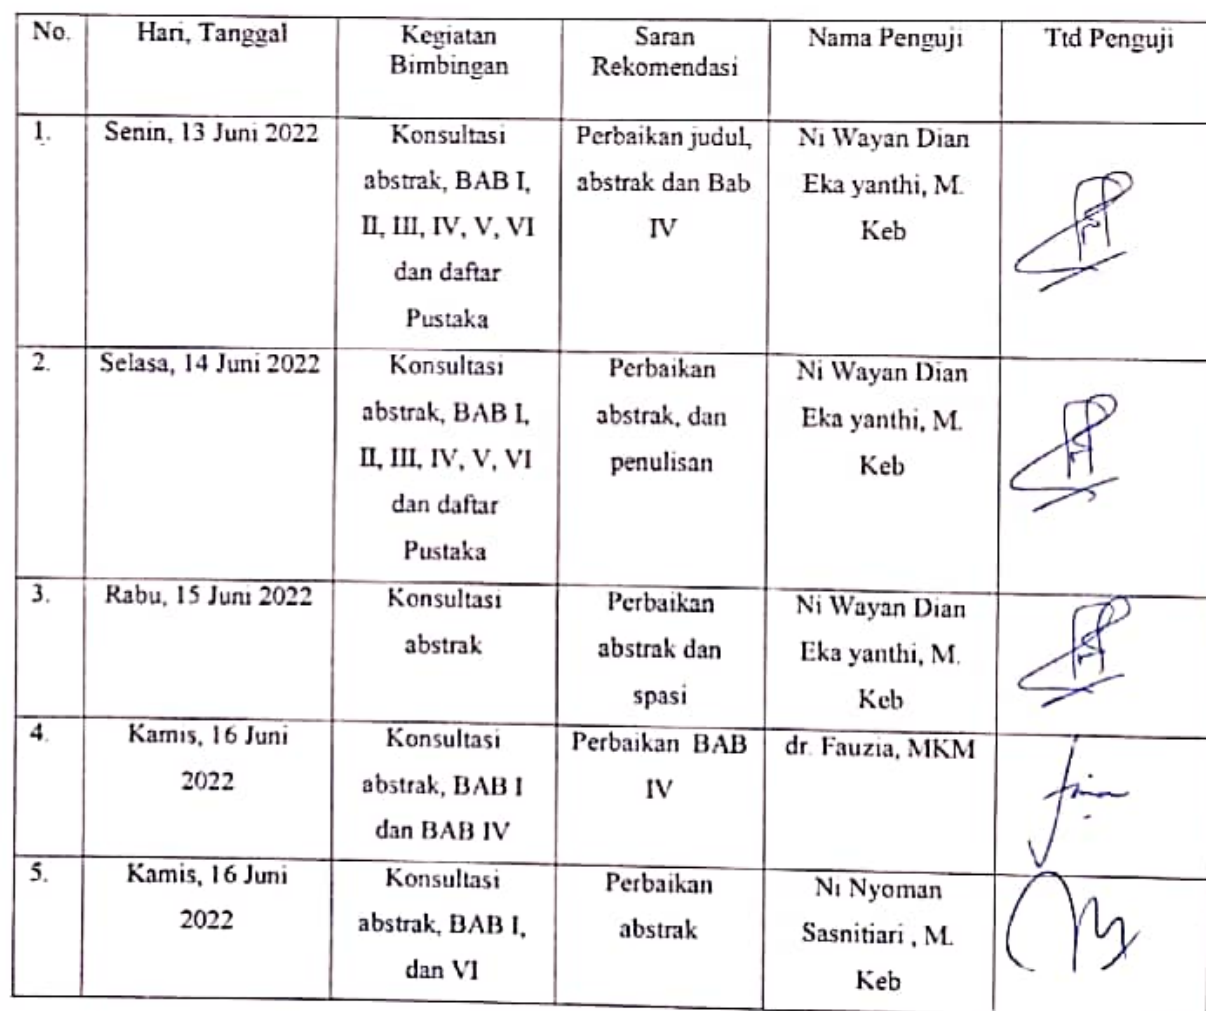 No.
Hari, Tanggal
Kegiatan
Bimbingan
Saran
Rekomendasi
Nama Penguji
Ttd Penguji
1.
Senin, 13 Juni 2022
Konsultasi
abstrak, BAB I,
II, III, IV, V, VI
dan daftar
Pustaka
Perbaikan judul,
abstrak dan Bab
IV
Ni Wayan Dian
Eka yanthi, M.
Keb
2.
Selasa, 14 Juni 2022
Konsultasi
abstrak, BAB I,
II, III, IV, V, VI
dan daftar
Pustaka
Perbaikan
abstrak, dan
penulisan
Ni Wayan Dian
Eka yanthi, M.
Keb
3.
Rabu, 15 Juni 2022
Konsultasi
abstrak
Perbaikan
abstrak dan
spasi
Ni Wayan Dian
Eka yanthi, M.
Keb
4.
Kamis, 16 Juni
2022
Konsultasi
abstrak, BAB I
dan BAB IV
Perbaikan BAB
IV
dr. Fauzia, MKM
5.
Kamis, 16 Juni
2022
Konsultasi
abstrak, BAB I,
dan VI
Perbaikan
abstrak
Ni Nyoman
Sasnitiari , M.
Keb